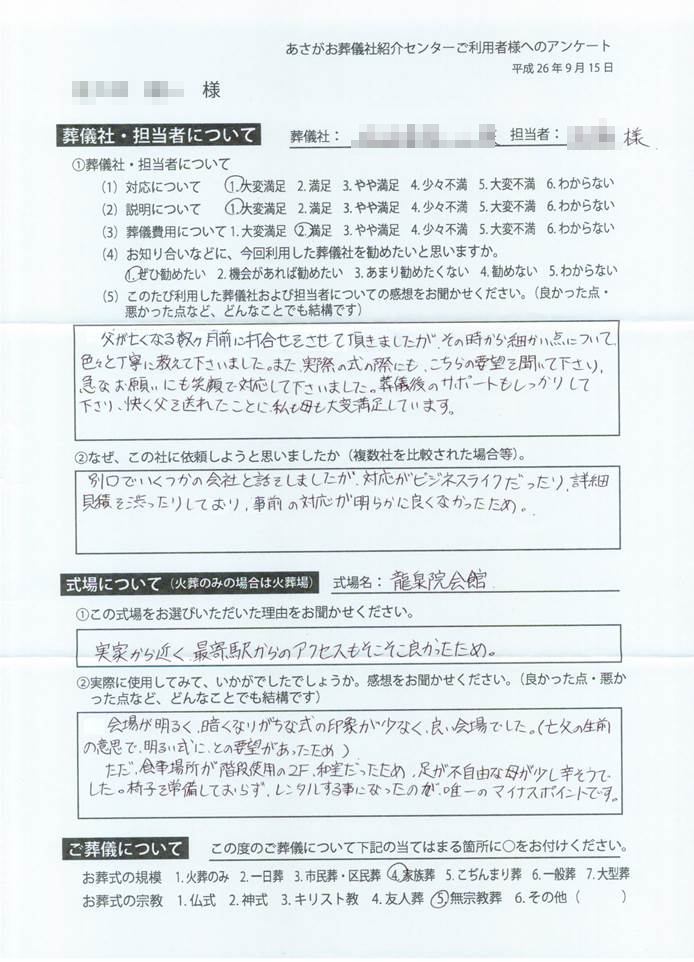 あさがお葬儀社紹介センターご利用者様へのアンケート
平成 26 年 9 月 15 日
様
葬儀社・担当者について 葬儀社： 担当者： 様
①葬儀社・担当者について
（1）対応について 1. 大変満足 2. 満足 3. やや満足 4. 少々不満 5. 大変不満 6. わからない
（2）説明について 1. 大変満足 2. 満足 3. やや満足 4. 少々不満 5. 大変不満 6. わからない
（3）葬儀費用について 1. 大変満足 2. 満足 3. やや満足 4. 少々不満 5. 大変不満 6. わからない
（4）お知り合いなどに、今回利用した葬儀社を勧めたいと思いますか。
1. ぜひ勧めたい 2. 機会があれば勧めたい 3. あまり勧めたくない 4. 勧めない 5. わからない
（5）このたび利用した葬儀社および担当者についての感想をお聞かせください。（良かった点・
悪かった点など、どんなことでも結構です）
父が亡くなる数ヶ月前に打合せをさせて頂きましたが、その時から細かい点について、
色々と丁寧に教えて下さいました。また、実際の式の際にも、こちらの要望を聞いて下さり、
急なお願いにも笑顔で対応して下さいました。葬儀後のサポートもしっかりして
下さり、快く父を送れたことに、私も母も大変満足しています。
②なぜ、この社に依頼しようと思いましたか（複数社を比較された場合等）。
別口でいくつかの会社と話をしましたが、対応がビジネスライクだったり、詳細
見積を渋ったりしており、事前の対応が明らかに良くなかったため。
式場について（火葬のみの場合は火葬場） 式場名： 龍泉院会館
①この式場をお選びいただいた理由をお聞かせください。
実家から近く、最寄駅からのアクセスもそこそこ良かったため。
②実際に使用してみて、いかがでしたでしょうか。感想をお聞かせください。（良かった点・悪か
った点など、どんなことでも結構です）
会場が明るく、暗くなりがちな式の印象が少なく、良い会場でした。（亡父の生前
の意思で、明るい式に、との要望があったため）
ただ、食事場所が階段使用の2F、和室だったため、足が不自由な母が少し辛そうで
した。椅子を常備しておらず、レンタルする事になったのが、唯一のマイナスポイントです。
ご葬儀について この度のご葬儀について下記の当てはまる箇所に○をお付けください。
お葬式の規模 1. 火葬のみ 2. 一日葬 3. 市民葬・区民葬 4. 家族葬 5. こぢんまり葬 6. 一般葬 7. 大型葬
お葬式の宗教 1. 仏式 2. 神式 3. キリスト教 4. 友人葬 5. 無宗教葬 6. その他（ ）